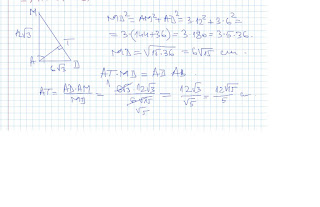 M
12√3
T
A
D
6√3
MD² = AM² + AD² = 3·12² + 3·6² =
= 3·(144+36) = 3·180 = 3·5·36
MD = √15·36 = 6√15 cm
AT·MD = AD·AM
AT = AD·AM / MD = 6√3·12√3 / 6√15 = 12√3 / √5 = 12√15 / 5